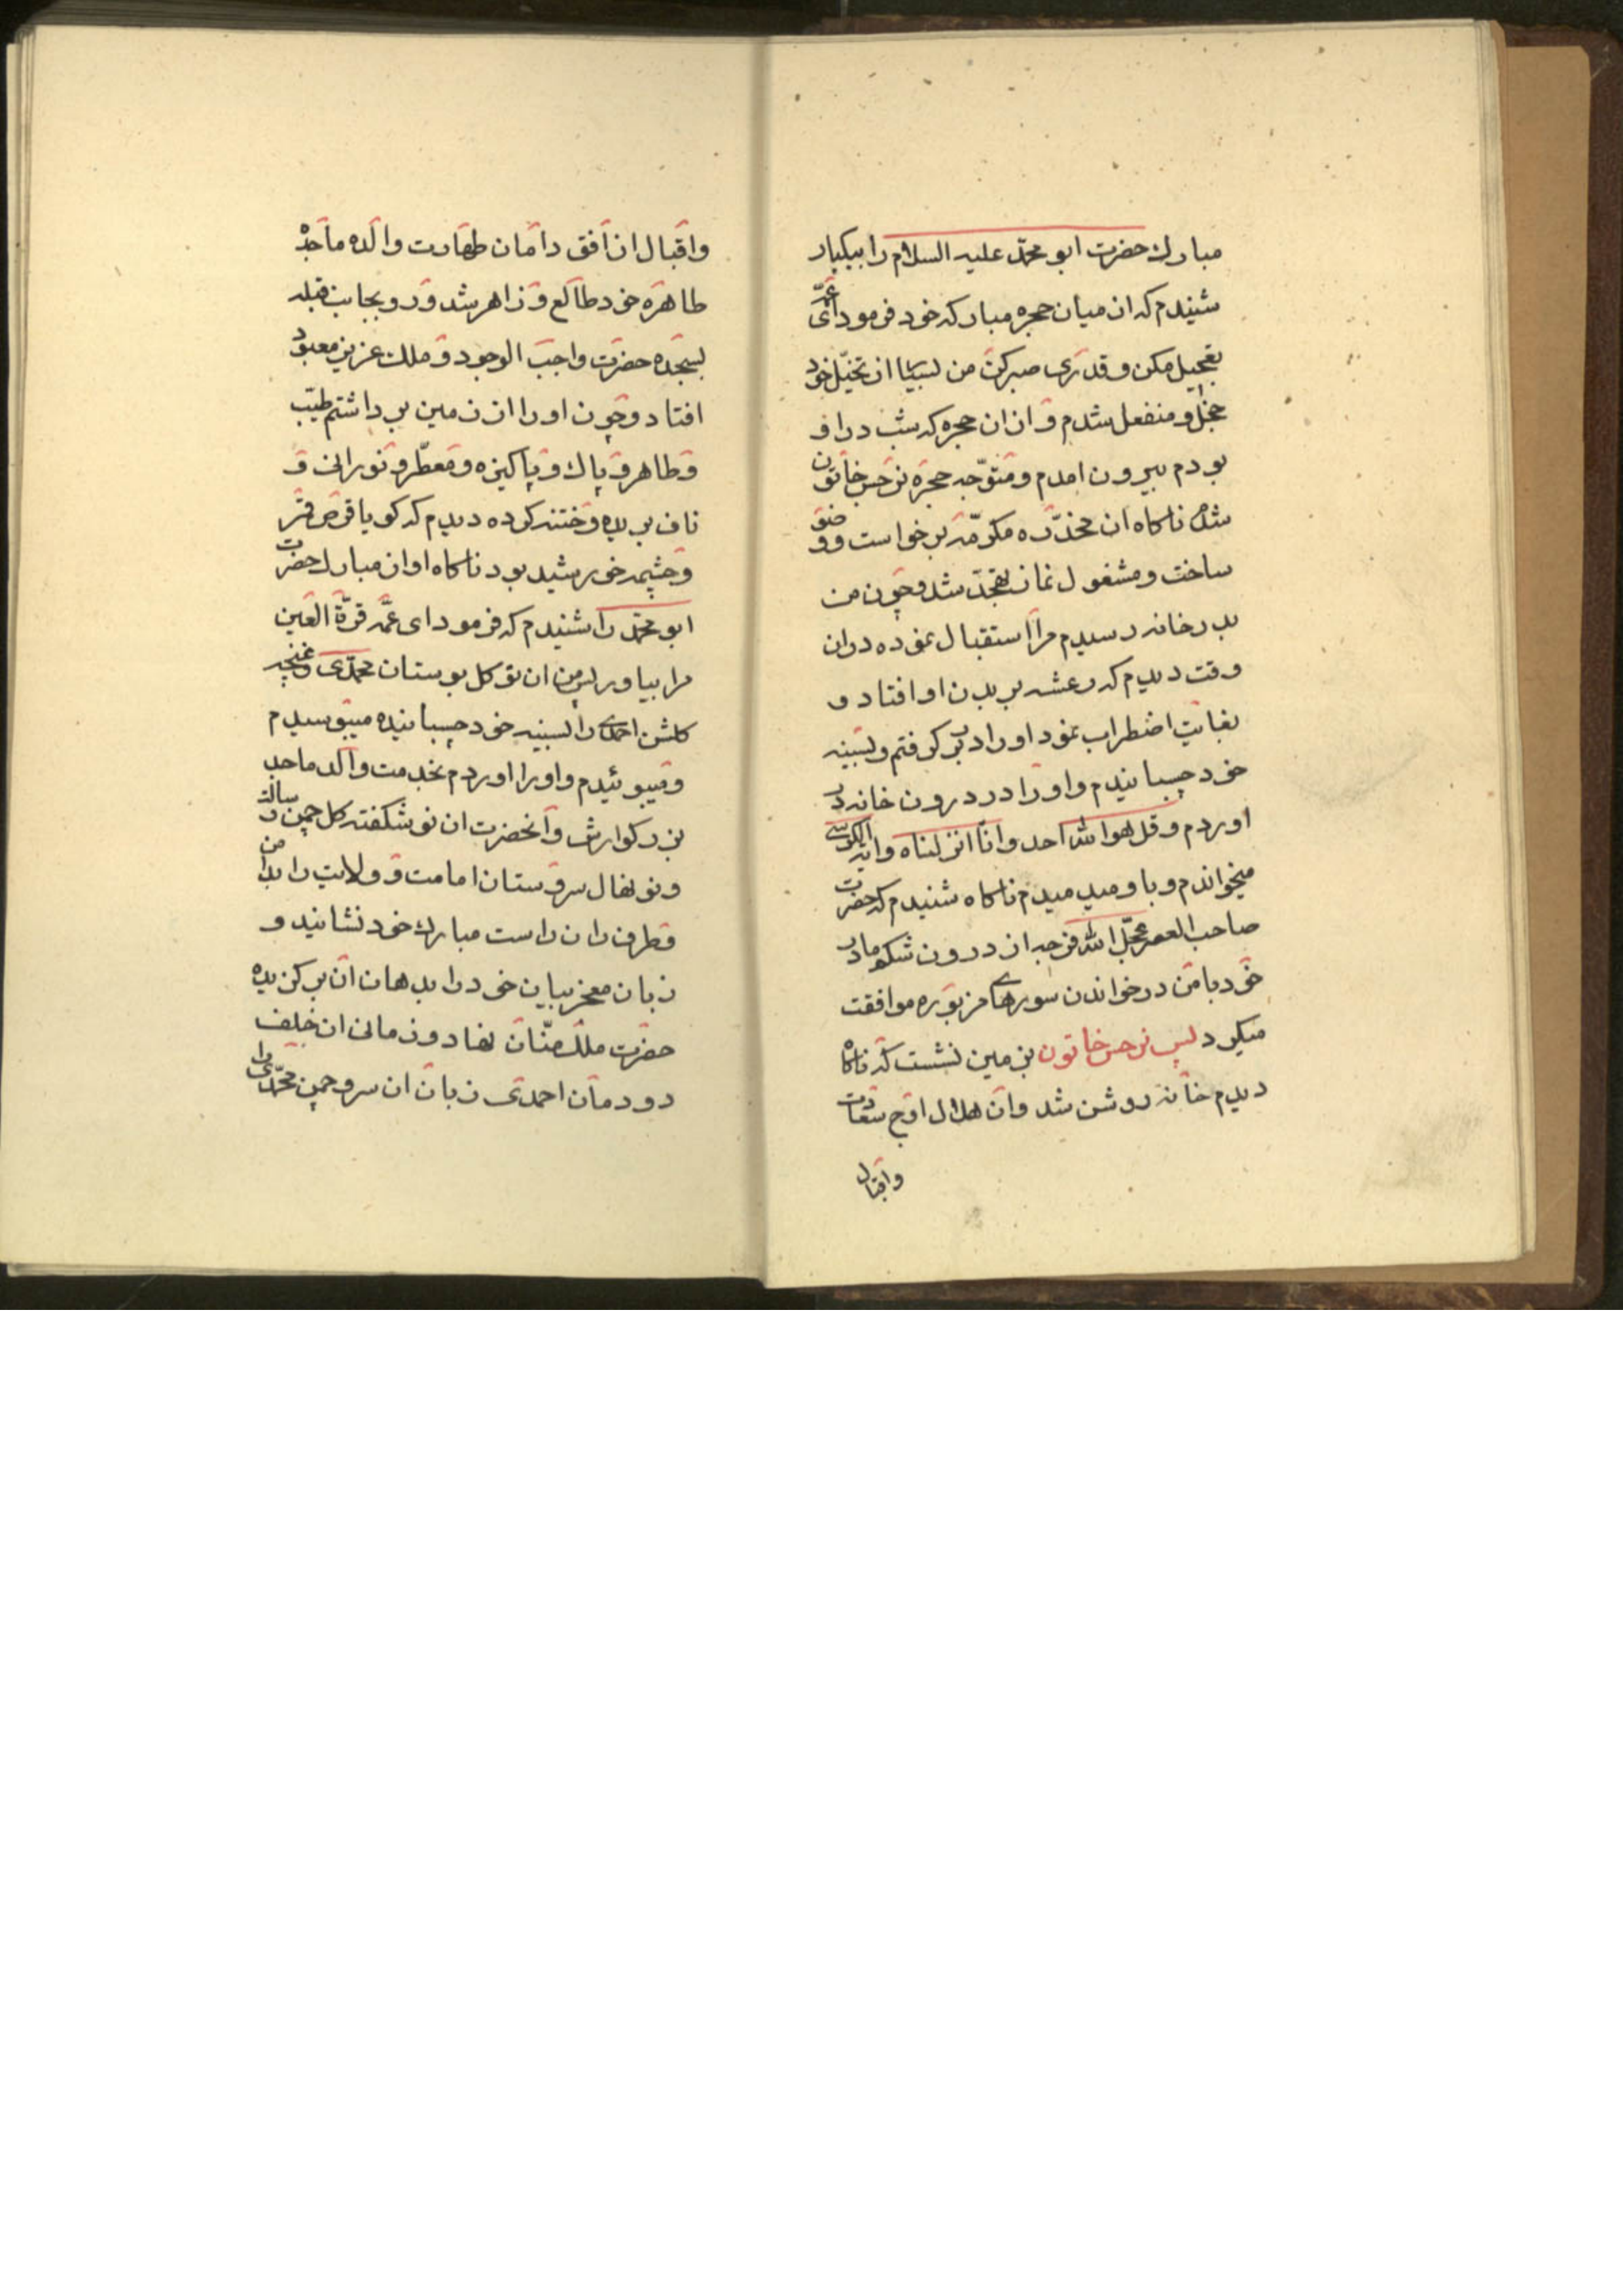 مبارك حضرت ابو محمّد عليه السلام را بيكبار
شنيدم كه از ميان حجره مباركه خود فرمود اى عمّه
تعجيل مكن و قدرى صبر كن من بسيا از تخيّل خود
خجل و منفعل شدم و از ان حجره كه شب در او
بودم بيرون امدم و متوّجه حجره نرجس خاتون
شدم ناكاه ان مخدّره مكرّمه بر خواست و وضو
ساخت و مشغول نماز تهجّد شد و چون من
بدر خانه رسيدم مرا استقبال نموده دران
وقت ديدم كه رعشه بر بدن او افتاد و
بغايت اضطراب نمود او را در بر كرفتم و بسينه
خود چسبانيدم و او را در درون خانه در
اوردم و قل هو الله احد و انّا انزلناه و اية الكرسى
ميخواندم و باو ميدميدم ناكاه شنيدم كه حضرت
صاحب العصر عجّل الله فرجه از درون شكم مادر
خود با من در خواندن سورهاى مزبوره موافقت
ميكرد پس نرجس خاتون بزمين نشست كه ناكاه
ديدم خانه روشن شد و ان هلال اوج سعادت
واقبال
واقبال از افق دامان طهارت والده ماجده
طاهره خود طالع و زاهر شد و رو بجانب قبله
بسجده حضرت واجب الوجود و ملك عزيز معبود
افتاد و چون او را از زمين بر داشتم طيّب
و طاهر و پاك و پاكيزه و معطّر و نورانى و
ناف بريده و ختنه كرده ديدم كه كويا قرص قمر
و چشمه خورشيد بود ناكاه اواز مبارك حضرت
ابو محمّد را شنيدم كه فرمود اى عمّه قرّة العين
مرا بياور پس من ان نو كل بوستان محمّدى و غنچه
كلشن احمدى را بسينه خود چسبانيده ميبوسيدم
و ميبوئيدم و او را اوردم بخدمت والد ماجد
بزركوارش و آنحضرت ان نو شكفته كل چمن رسالت
و نو نهال سروستان امامت و ولايت را بدامن
و طرف ران راست مبارك خود نشانيد و
زبان معجز بيان خود را بدهان ان بركزيده
حضرت ملك منّان نهاد و زمانى ان خلف
دودمان احمدى زبان ان سرو چمن محمّدى را